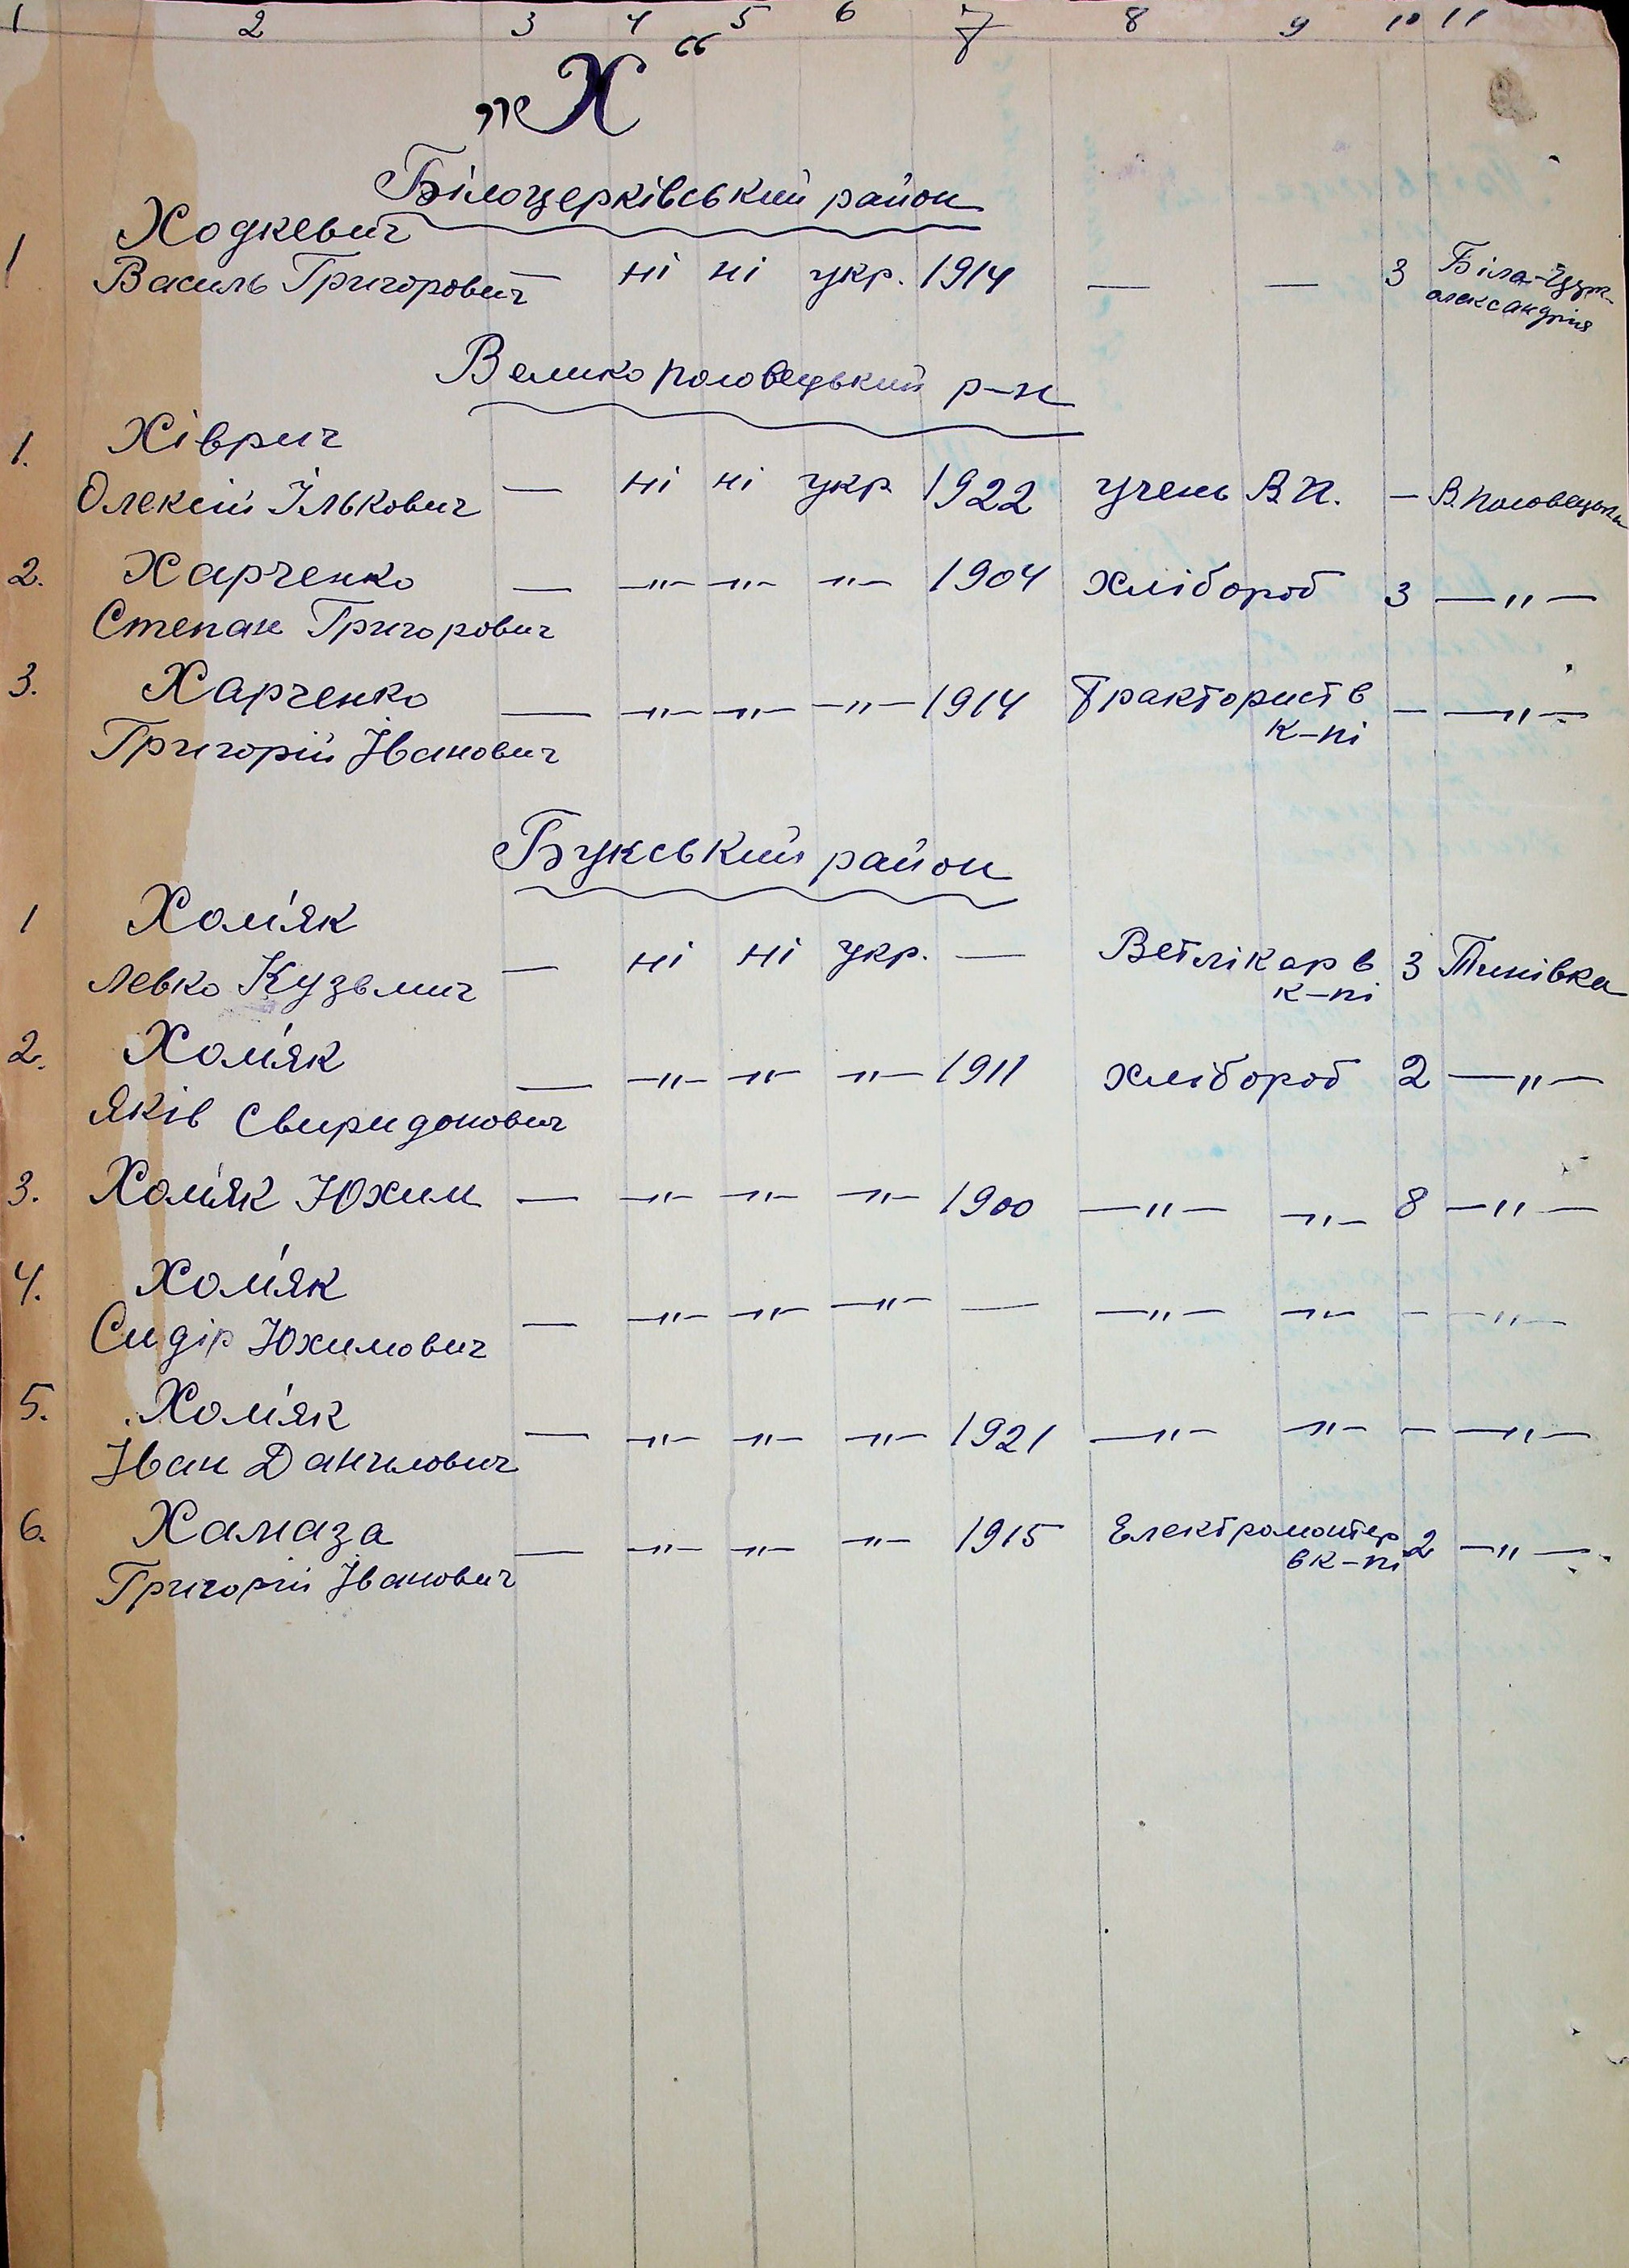 1 2 3 4 5 6 7 8 9 10 11
„Х“
Білоцерківський район
Ходкевич
1 Василь Григорович — ні ні укр. 1914 — — 3 Біла-Церк.
александрія
Великополовецький р-н
1. Хіврич
Олексій Ількович — ні ні укр 1922 учень В.П. — В.Половецьке
2. Харченко — —"— —"— —"— 1904 хлібороб 3 —"—
Степан Григорович
3. Харченко — —"— —"— —"— 1914 Тракторист в — —"—
Григорій Іванович к-пі
Букський район
1 Хом'як
Левко Кузьмич — ні ні укр. — Ветлікар в 3 Тинівка
к-пі
2. Хом'як — —"— —"— —"— 1911 хлібороб 2 —"—
Яків Свиридонович
3. Хом'як Юхим — —"— —"— —"— 1900 —"— —"— 8 —"—
4. Хом'як — —"— —"— —"— — —"— —"— — —"—
Сидір Юхимович
5. Хом'як — —"— —"— —"— 1921 —"— —"— — —"—
Іван Данилович
6. Хамаза — —"— —"— —"— 1915 Електромонтер 2 —"—
Григорій Іванович в к-пі